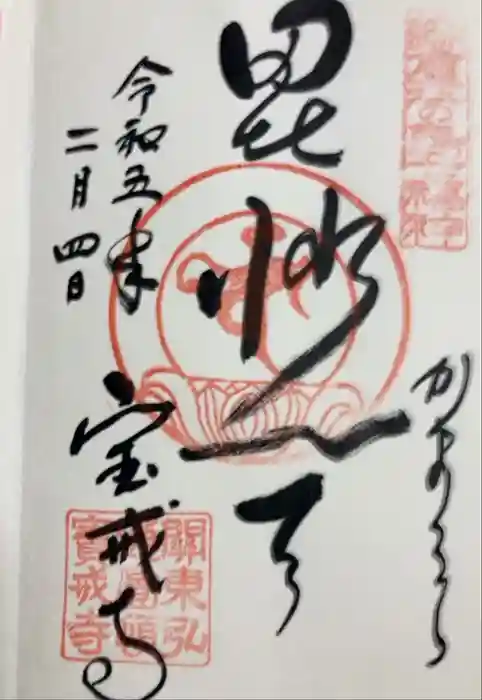 かまくら
毘沙門天
令和五年
二月四日
宝戒寺
關東弘
圓頓
寶戒寺